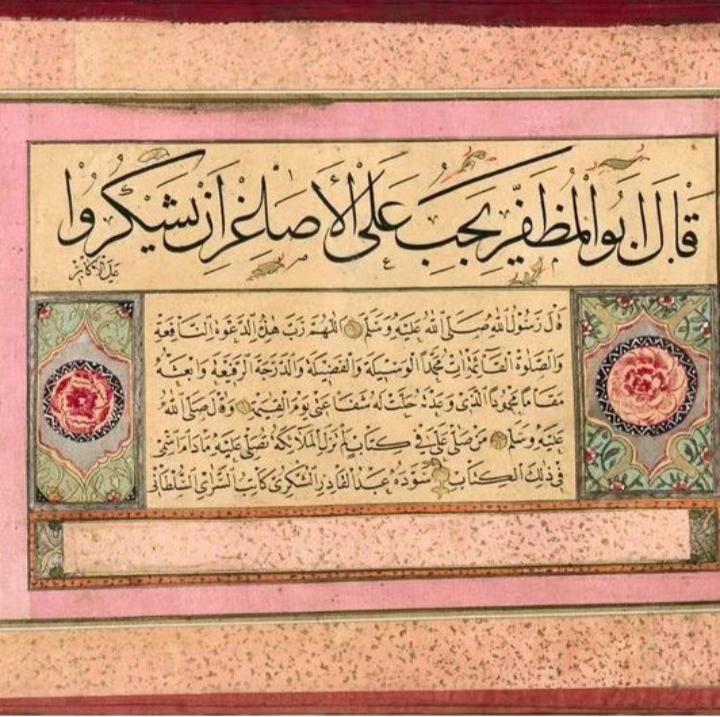 قَالَ اَبُو الْمُظَفَّرِ يَجِبُ عَلَى الْأَصَاغِرِ اَنْ يَشْكُرُوا
عَلَى الأكابر
قَالَ رَسُولُ اللهِ صَلَّى اللهُ عَلَيْهِ وَسَلَّمَ اَللّٰهُمَّ رَبَّ هٰذِهِ الدَّعْوَةِ النَّافِعَةِ
وَالصَّلوٰةِ الْقَائِمَةِ اٰتِ مُحَمَّداً الْوَسِيلَةَ وَالْفَضِيلَةَ وَالدَّرَجَةَ الرَّفِيعَةَ وَابْعَثْهُ
مَقَاماً مَحْمُوداً الَّذِى وَعَدْتَهُ حَلَّتْ لَهُ شَفَاعَتِى يَوْمَ الْقِيٰمَةِ وَقَالَ صَلَّى اللهُ
عَلَيْهِ وَسَلَّمَ مَنْ صَلَّى عَلَيَّ فِى كِتَابٍ لَمْ تَزَلِ الْمَلَائِكَةُ تُصَلِّى عَلَيْهِ مَادَامَ اسْمِى
فِى ذٰلِكَ الْكِتَابِ سَوَّدَهُ عَبْدُ الْقَادِرِ الشُّكْرِى كَاتِبُ السَّرَايِ السُّلْطَانِى